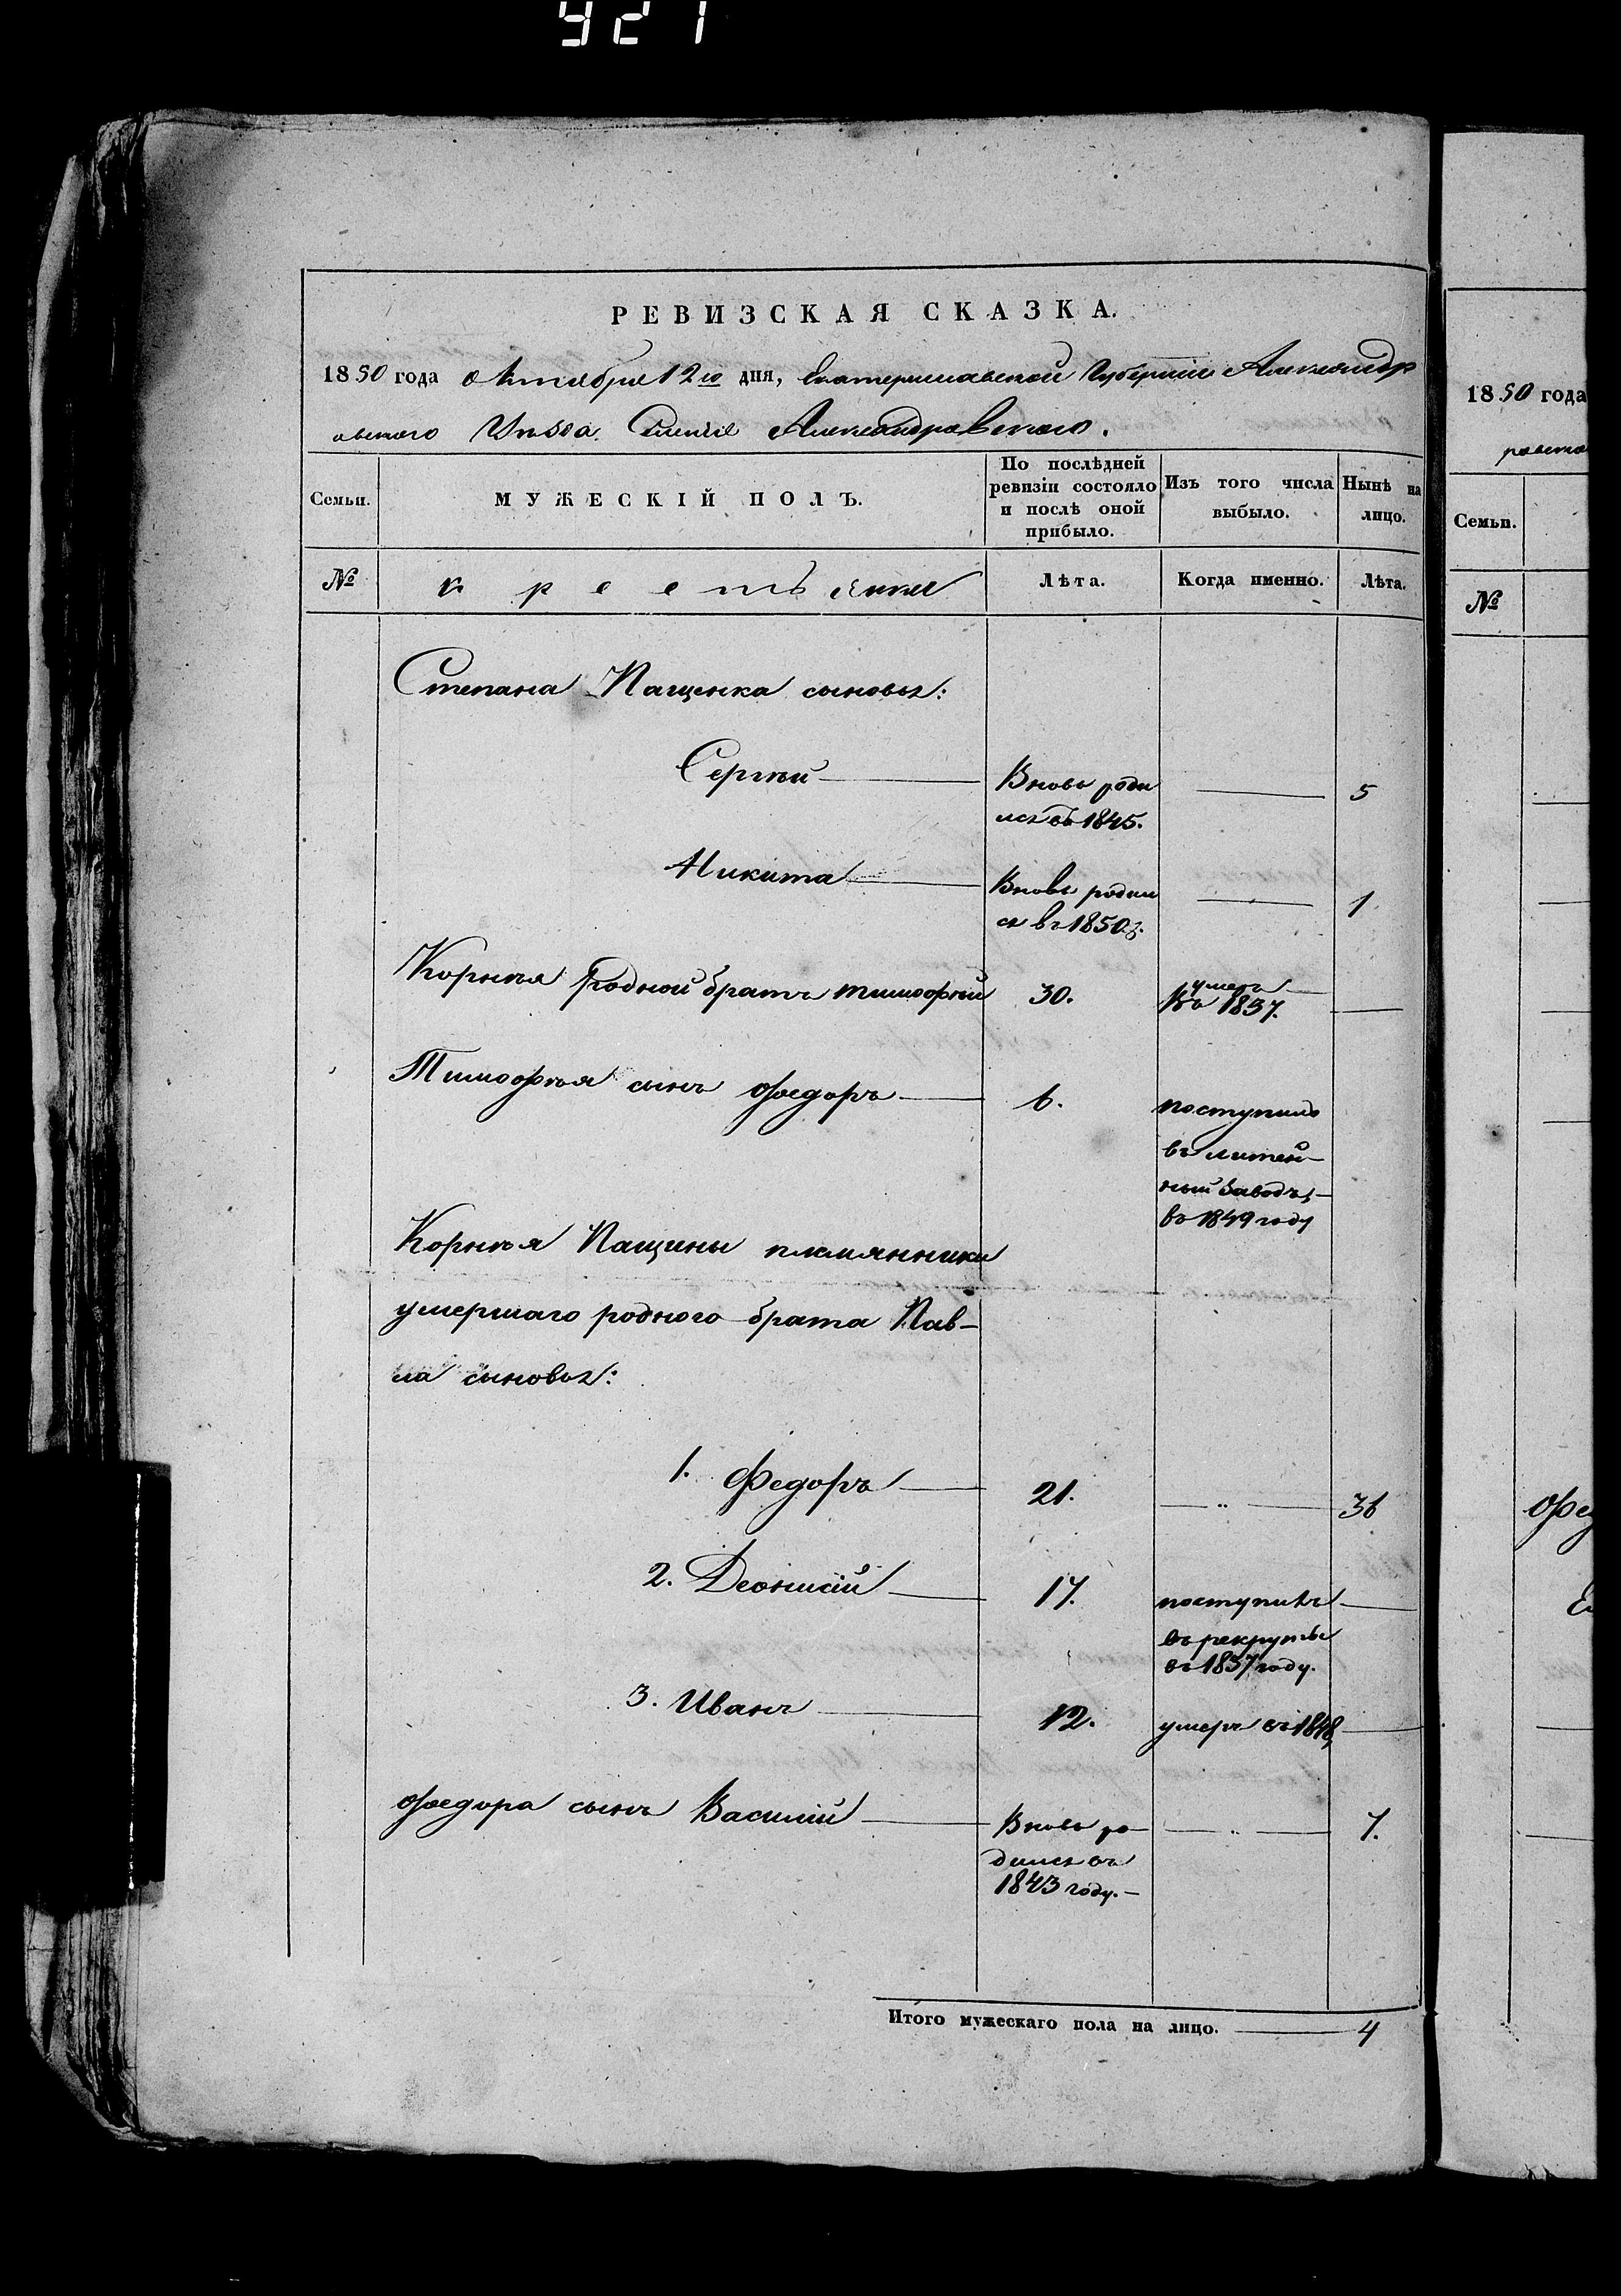 921
РЕВИЗСКАЯ СКАЗКА.
1850 года октября 12го дня, Екатеринославской Губернии Александр
овского Уѣзда Селенія Александровского.
Семьи.
МУЖЕСКІЙ ПОЛЪ.
По послѣдней
ревизіи состояло
и послѣ оной
прибыло.
Изъ того числа
выбыло.
Нынѣ на
лицо.
№
крестьяне
Лѣта.
Когда именно.
Лѣта.
Степана Пащенка сыновья:
Сергѣй
Вновь роди
лся въ 1845.
5
Никита
Вновь родил
ся въ 1850г.
1
Корнѣя родной братъ тимофѣй
30.
умеръ
Въ 1837.
Тимофѣя сынъ Федоръ
6.
поступилъ
въ литей-
ный заводъ
въ 1849 году
Корнѣя Пащины племянники
умершаго родного брата Пав-
ла сыновья:
1. Федоръ
21.
36
2. Деонисій
17.
поступилъ
въ рекруты
въ 1837 году.
3. Иванъ
12.
умеръ въ 1848
Федора сынъ Василій
Вновь ро
дился въ
1843 году.
7.
Итого мужескаго пола на лицо.
4
1850 года
Семьи.
№